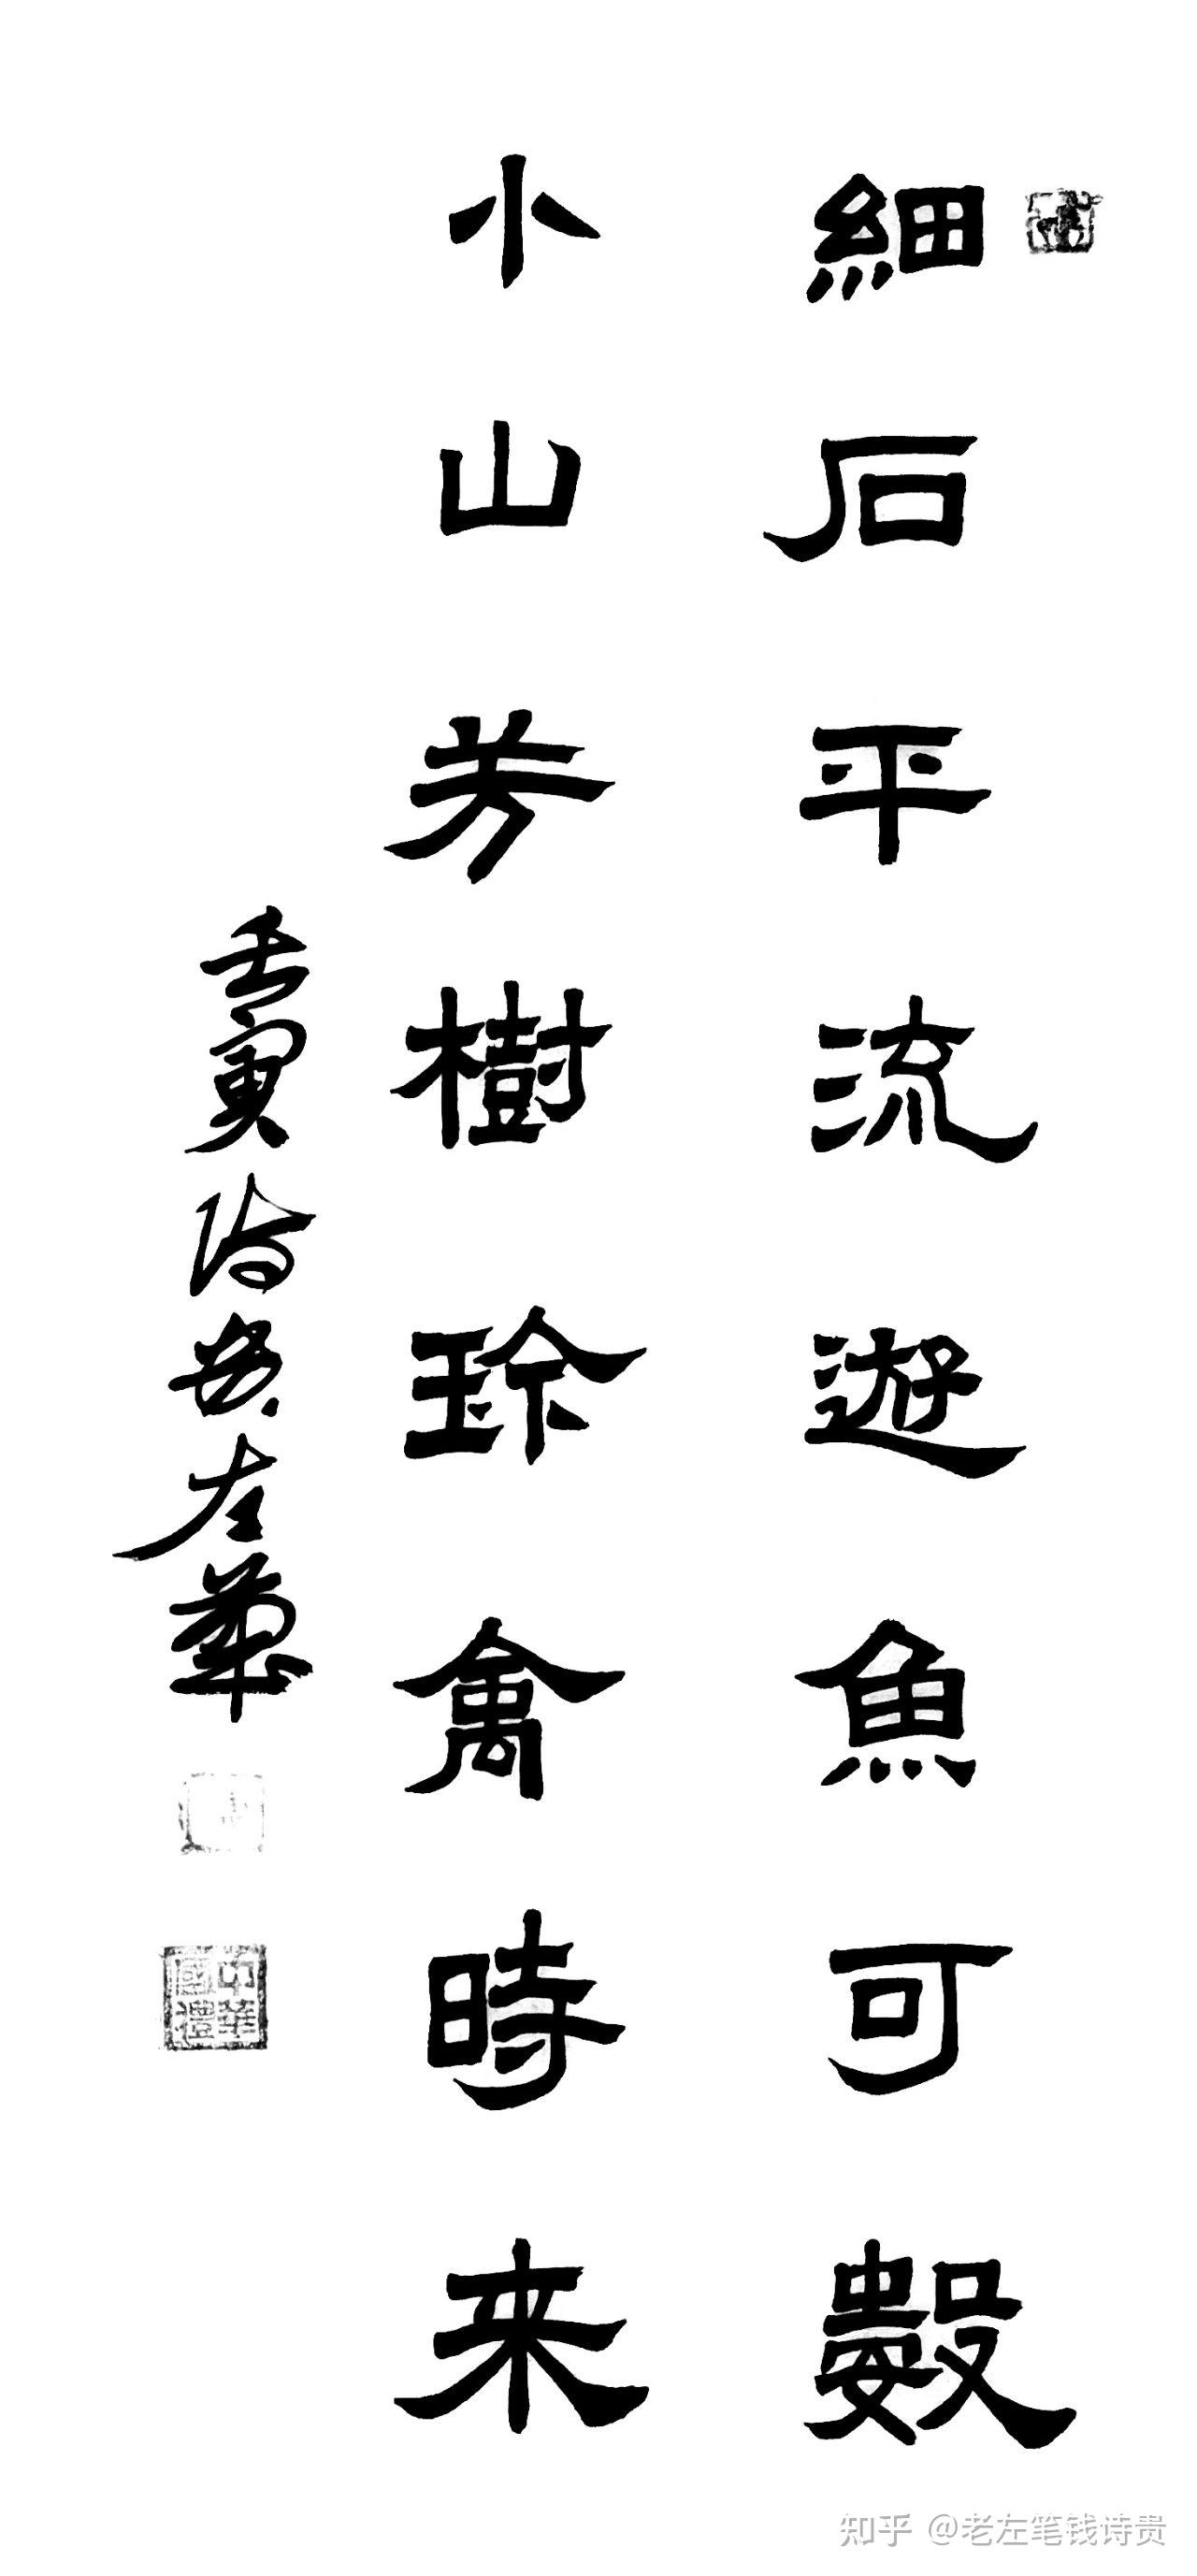 細石平流遊魚可數
小山芳樹珍禽時來
壬寅 左華
中華國禮
知乎 @老左笔钱诗贵